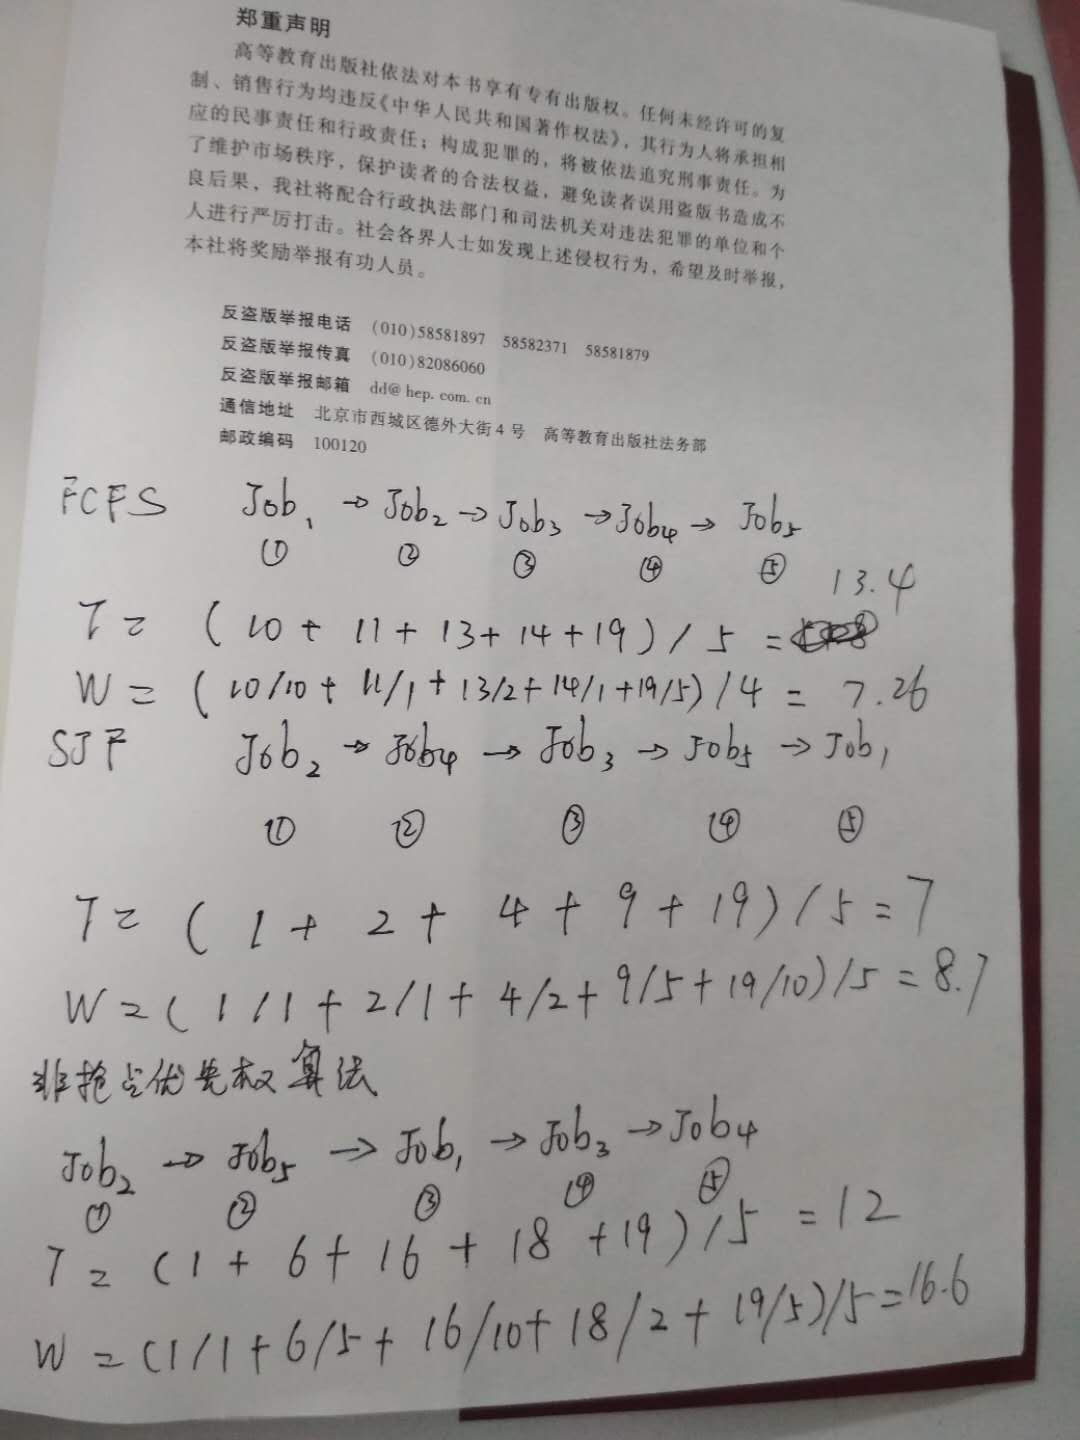 郑重声明
高等教育出版社依法对本书享有专有出版权。任何未经许可的复
制、销售行为均违反《中华人民共和国著作权法》，其行为人将承担相
应的民事责任和行政责任；构成犯罪的，将被依法追究刑事责任。为
了维护市场秩序，保护读者的合法权益，避免读者误用盗版书造成不
良后果，我社将配合行政执法部门和司法机关对违法犯罪的单位和个
人进行严厉打击。社会各界人士如发现上述侵权行为，希望及时举报，
本社将奖励举报有功人员。
反盗版举报电话 (010)58581897 58582371 58581879
反盗版举报传真 (010)82086060
反盗版举报邮箱 dd@hep.com.cn
通信地址 北京市西城区德外大街4号 高等教育出版社法务部
邮政编码 100120
FCFS Job1 → Job2 → Job3 → Job4 → Job5
① ② ③ ④ ⑤
T = (10 + 11 + 13 + 14 + 19) / 5 = 13.4
W = (10/10 + 11/1 + 13/2 + 14/1 + 19/5) / 4 = 7.26
SJF Job2 → Job4 → Job3 → Job5 → Job1
① ② ③ ④ ⑤
T = (1 + 2 + 4 + 9 + 19) / 5 = 7
W = (1/1 + 2/1 + 4/2 + 9/5 + 19/10) / 5 = 8.7
非抢占优先权算法
Job2 → Job5 → Job1 → Job3 → Job4
① ② ③ ④ ⑤
T = (1 + 6 + 16 + 18 + 19) / 5 = 12
W = (1/1 + 6/5 + 16/10 + 18/2 + 19/5) / 5 = 16.6